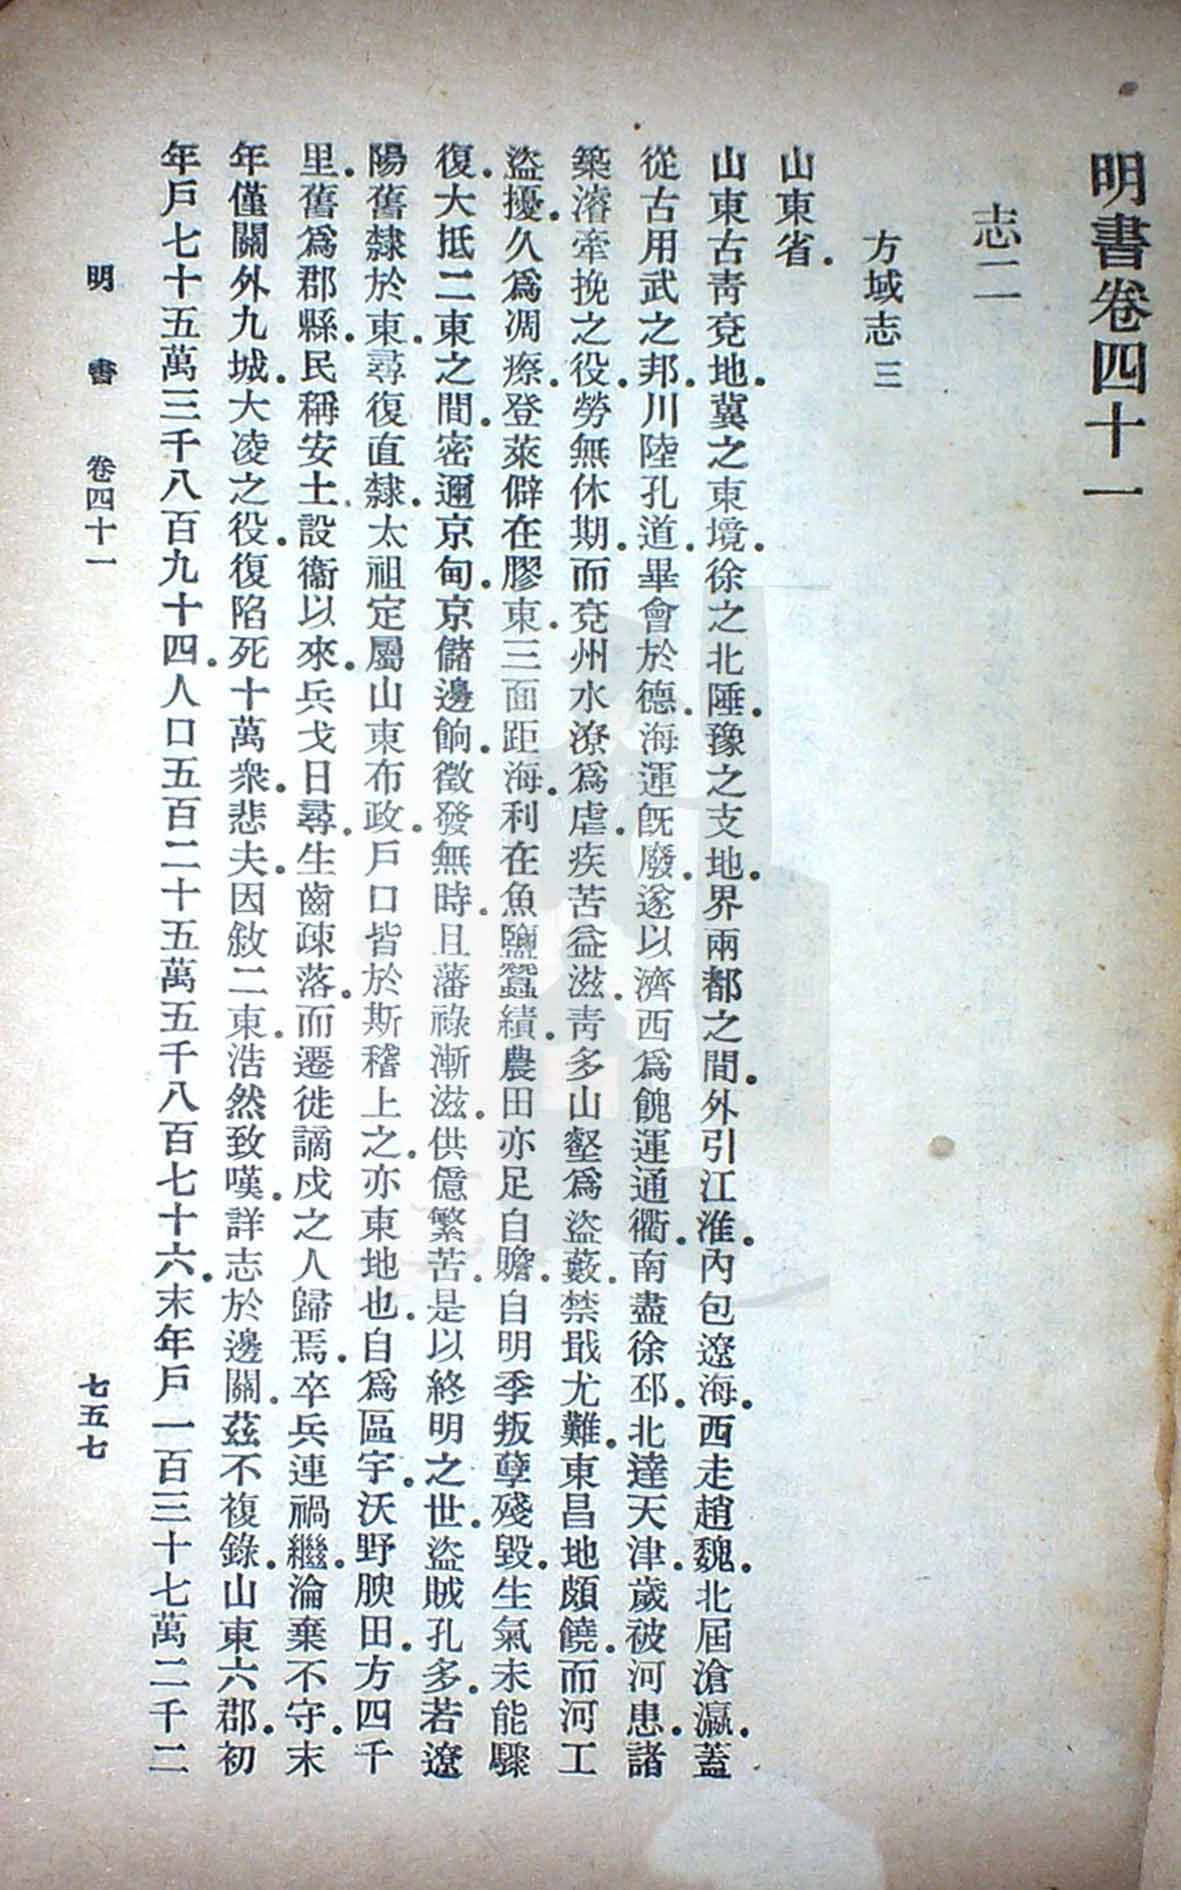 明書卷四十一
志二
方域志三
山東省.
山東古靑兗地.冀之東境.徐之北陲.豫之支地.界兩都之間.外引江淮.內包遼海.西走趙魏.北屆滄瀛.蓋
從古用武之邦.川陸孔道.畢會於德.海運旣廢.遂以濟西爲餽運通衢.南盡徐邳.北達天津.歲被河患.諸
築濬牽挽之役.勞無休期.而兗州水潦爲虐.疾苦益滋.靑多山壑爲盜藪.禁戢尤難.東昌地頗饒.而河工
盜擾.久爲凋瘵.登萊僻在膠東.三面距海.利在魚鹽蠶績.農田亦足自贍.自明季叛孽殘毀.生氣未能驟
復.大抵二東之間.密邇京甸.京儲邊餉.徵發無時.且藩祿漸滋.供億繁苦.是以終明之世.盜賊孔多.若遼
陽舊隸於東.尋復直隸.太祖定屬山東布政.戶口皆於斯稽上之.亦東地也.自爲區宇.沃野腴田.方四千
里.舊爲郡縣.民稱安土.設衞以來.兵戈日尋.生齒疎落.而遷徙謫戍之人歸焉.卒兵連禍繼.淪棄不守.末
年僅關外九城.大凌之役.復陷死十萬衆.悲夫.因敘二東.浩然致嘆.詳志於邊關.茲不複錄.山東六郡.初
年戶七十五萬三千八百九十四.人口五百二十五萬五千八百七十六.末年戶一百三十七萬二千二
明 書 卷四十一 七五七